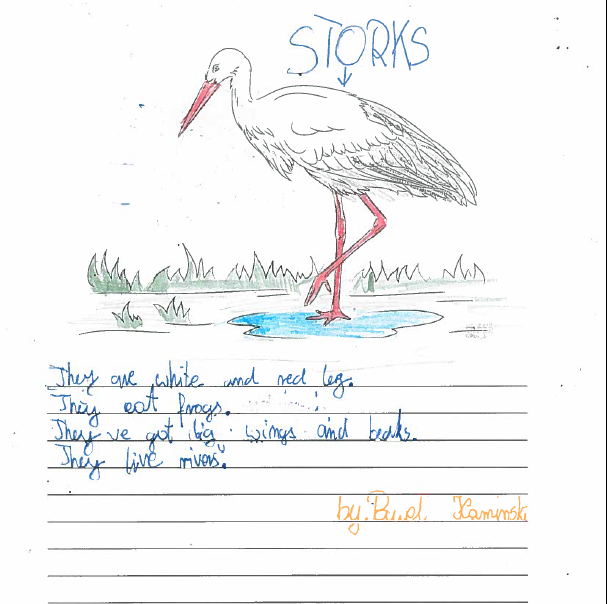 STORKS
They are white and red leg.
They eat frogs.
They've got big wings and beaks.
They live rivers.
by. Kaminski